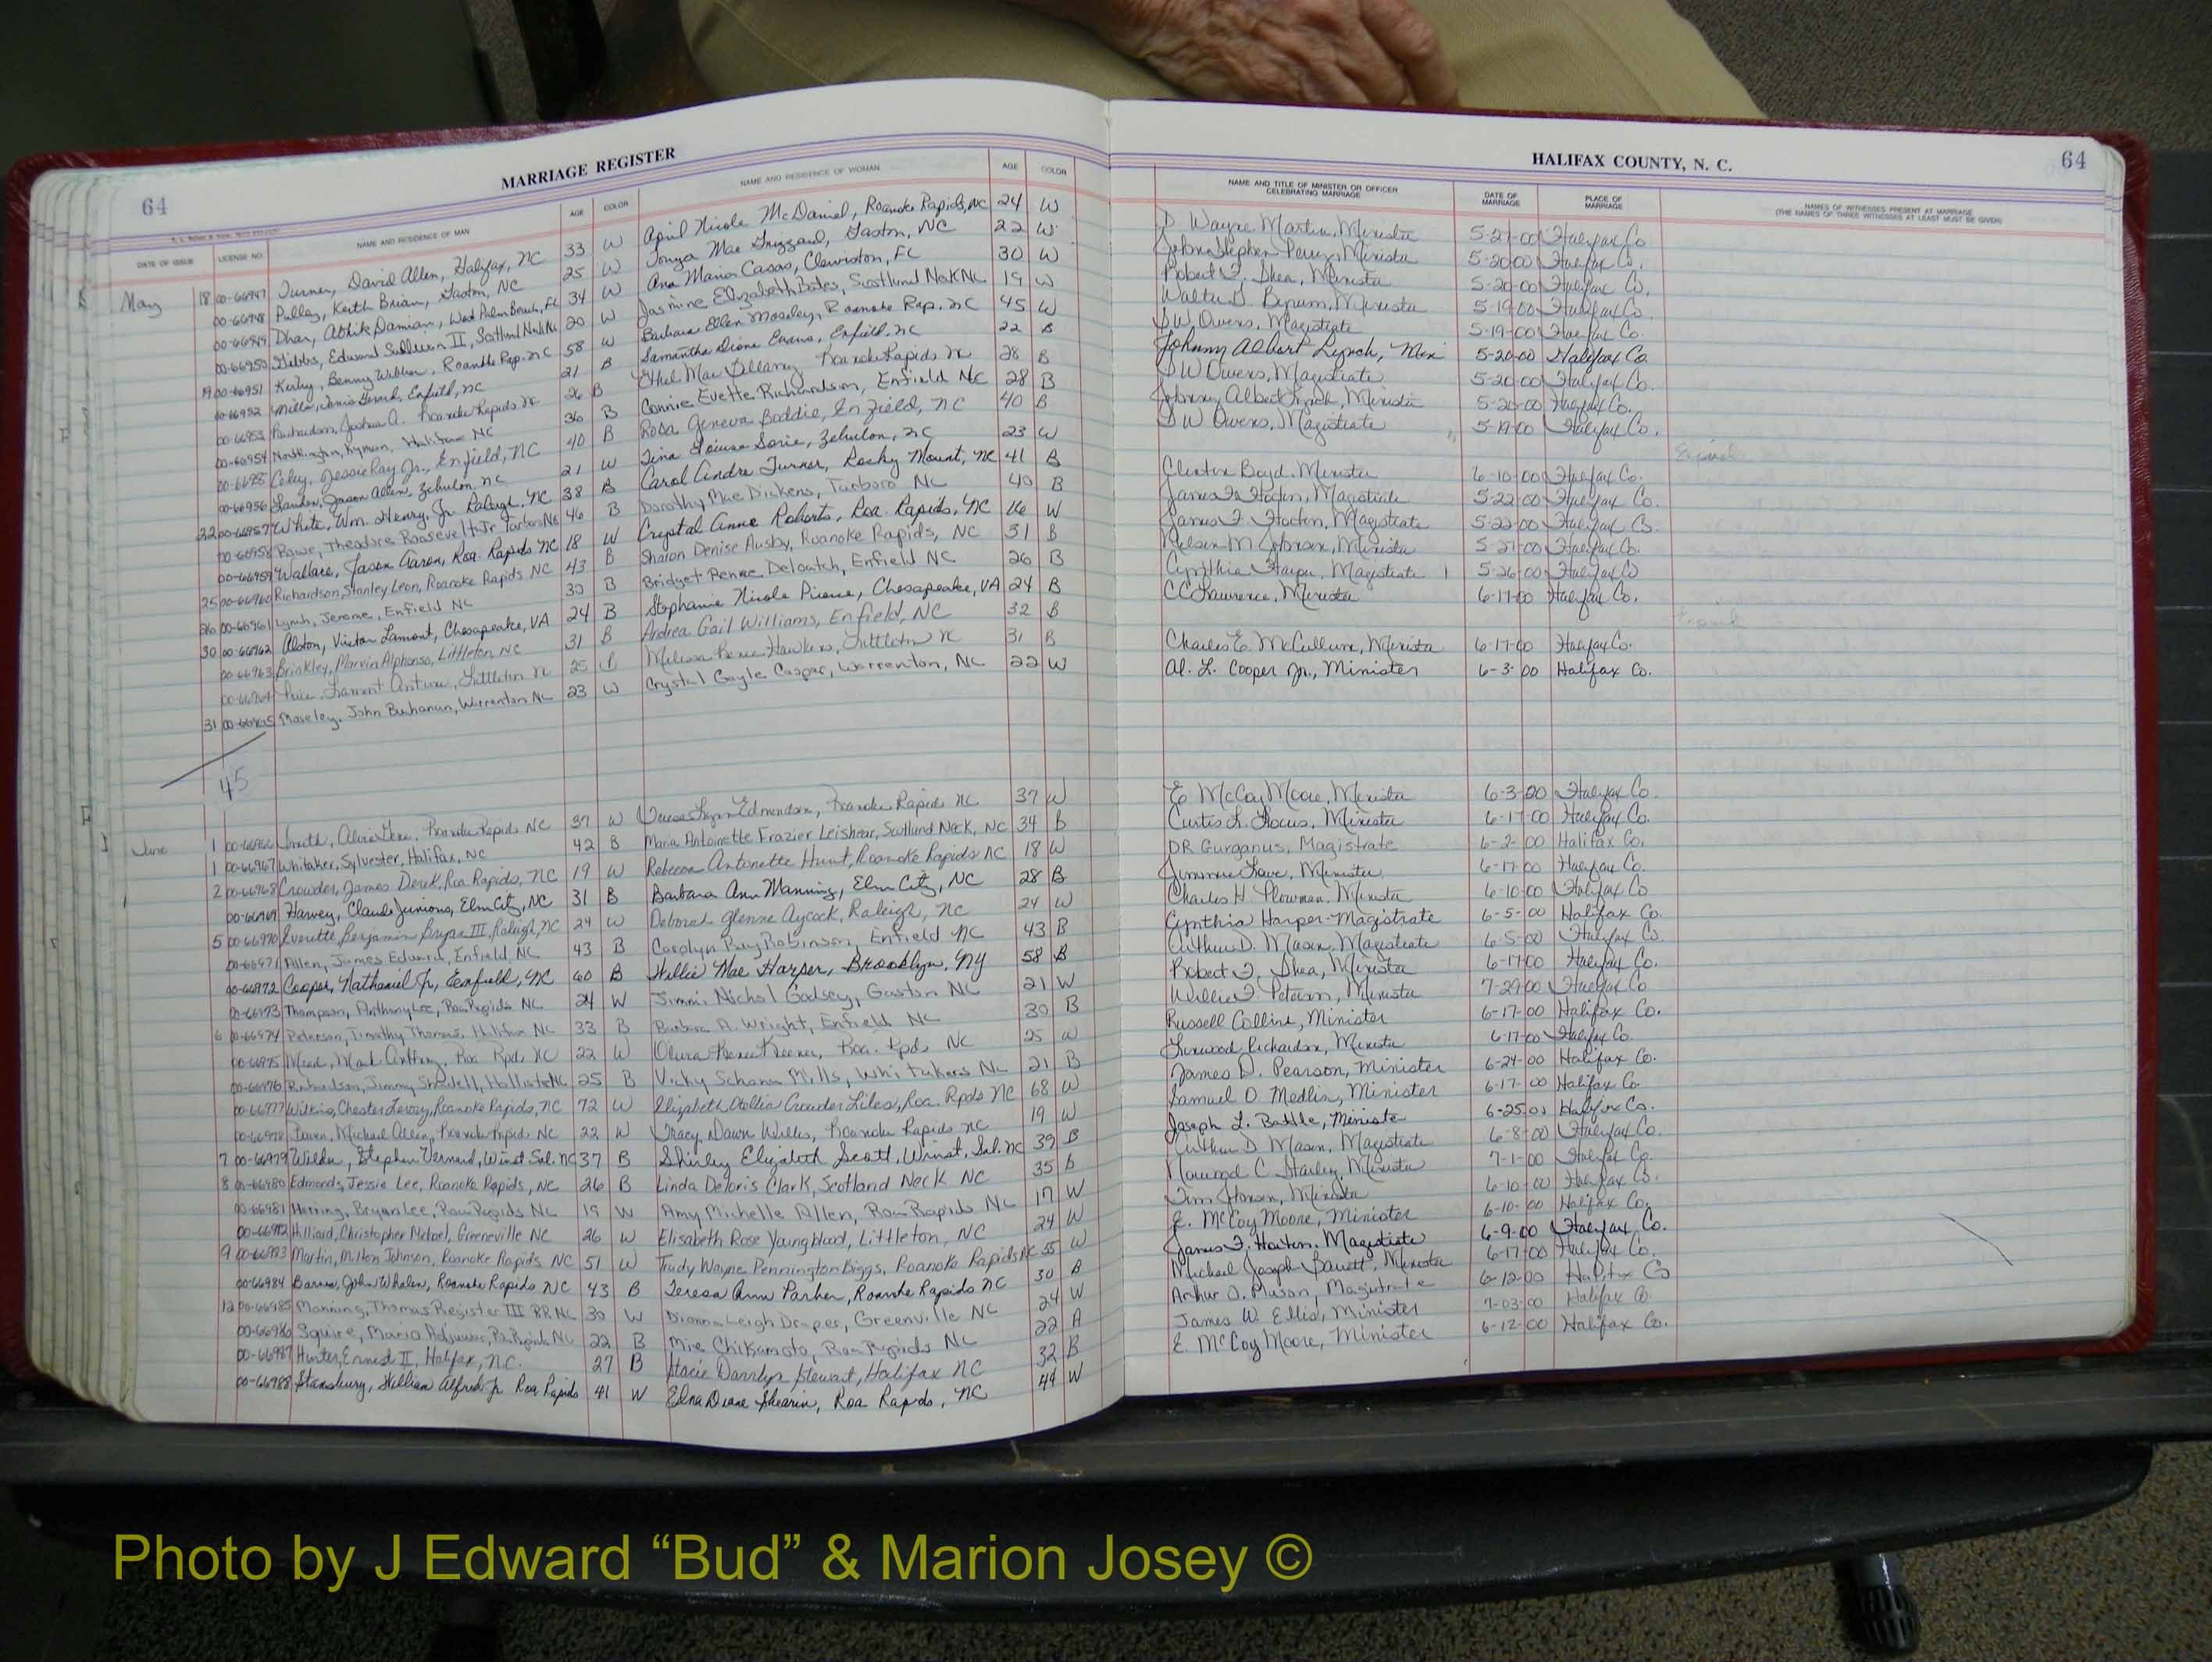 64
MARRIAGE REGISTER
DATE OF ISSUE LICENSE NO. NAME AND RESIDENCE OF MAN AGE COLOR NAME AND RESIDENCE OF WOMAN AGE COLOR
May 18 00-66947 Turner, David Allen, Halifax, NC 33 W April Nicole McDaniel, Roanoke Rapids, NC 24 W
00-66948 Pulley, Keith Brian, Gaston, NC 25 W Tonya Mae Grizzard, Gaston, NC 22 W
00-66949 Dhar, Damian, West Palm Beach, FL 34 W Ana Maria Casas, Clewiston, FL 30 W
00-66950 Gibbs, Edward Sullivan II, Scotland Neck NC 20 W Jasmine Elizabeth Bates, Scotland Neck NC 19 W
19 00-66951 Benny, Roanoke Rap. NC 58 W Barbara Ellen Moseley, Roanoke Rap. NC 45 W
00-66952 Enfield, NC 21 B Samantha Dione Evans, Enfield, NC 22 B
00-66953 Richardson, Joshua A. Roanoke Rapids NC 26 B Ethel Mae Roanoke Rapids NC 28 B
00-66954 Kymen, Halifax NC 36 B Connie Evette Richardson, Enfield NC 28 B
00-66955 Coley, Jessie Ray Jr., Enfield, NC 40 B Rosa Geneva Boddie, Enfield, NC 40 B
00-66956 Jason Allen, Zebulon, NC 21 W Tina Louise Zebulon, NC 23 W
22 00-66957 White, Wm. Henry, Jr. Raleigh, NC 38 B Carol Andra Turner, Rocky Mount, NC 41 B
00-66958 Rowe, Theodore Roosevelt Jr Tarboro NC 46 B Dorothy Mae Dickens, Tarboro NC 40 B
00-66959 Wallace, Jason Aaron, Roa. Rapids NC 18 W Crystal Anne Roberts, Roa. Rapids, NC 16 W
25 00-66960 Richardson, Stanley Leon, Roanoke Rapids NC 43 B Sharon Denise Ausby, Roanoke Rapids, NC 31 B
26 00-66961 Lynch, Jerome, Enfield NC 30 B Bridget Renee Deloatch, Enfield NC 26 B
30 00-66962 Alston, Victor Lamont, Chesapeake, VA 24 B Stephanie Nicole Pierce, Chesapeake, VA 24 B
00-66963 Brinkley, Marvin Alphonso, Littleton, NC 31 B Andrea Gail Williams, Enfield, NC 32 B
00-66964 Lamont Littleton NC 25 Melissa Renee Hawkins, Littleton NC 31 B
31 00-66965 Moseley, John Buchanan, Warrenton NC 23 W Crystal Gayle Casper, Warrenton, NC 22 W
45
June 1 00-66966 Smith, Roanoke Rapids NC 37 W Teresa Lynn Edmondson, Roanoke Rapids NC 37 W
1 00-66967 Whitaker, Sylvester, Halifax, NC 42 B Maria Antoinette Frazier Leishear, Scotland Neck, NC 34 B
2 00-66968 Crowder, James Derek, Roa Rapids, NC 19 W Rebecca Antonette Hunt, Roanoke Rapids NC 18 W
00-66969 Harvey, Claude Junious, Elm City, NC 31 B Barbara Ann Manning, Elm City, NC 28 B
5 00-66970 Everette, Benjamin Bryan III, Raleigh, NC 24 W Deborah Glenne Aycock, Raleigh, NC 24 W
00-66971 Allen, James Edward, Enfield, NC 43 B Carolyn Ray Robinson, Enfield NC 43 B
00-66972 Cooper, Nathaniel Jr, Enfield, NC 60 B Willie Mae Harper, Brooklyn, NY 58 B
00-66973 Thompson, Anthony Lee, Roa Rapids NC 24 W Jimmi Nichol Godsey, Gaston NC 21 W
6 00-66974 Peterson, Timothy Thomas, Halifax NC 33 B Barbara A. Wright, Enfield NC 30 B
00-66975 Mead, Mark Anthony, Roa Rpds NC 22 W Renee Keener, Roa. Rpds NC 25 W
00-66976 Richardson, Jimmy Hollister NC 25 B Vicky Mills, Whitakers NC 21 B
00-66977 Wilkins, Chester Leroy, Roanoke Rapids, NC 72 W Elizabeth Otellia Crowder Liles, Roa. Rpds NC 68 W
00-66978 Michael Allen, Roanoke Rapids NC 22 W Tracy Dawn Willis, Roanoke Rapids NC 19 W
7 00-66979 Stephen Vernard, Winst Sal. NC 37 B Shirley Elizabeth Scott, Winst. Sal. NC 39 B
8 00-66980 Edmonds, Jessie Lee, Roanoke Rapids, NC 26 B Linda Deloris Clark, Scotland Neck NC 35 B
00-66981 Herring, Bryan Lee, Roa Rapids NC 19 W Amy Michelle Allen, Roa Rapids NC 17 W
00-66982 Hilliard, Christopher Michael, Greeneville NC 26 W Elisabeth Rose Youngblood, Littleton, NC 24 W
9 00-66983 Martin, Milton Johnson, Roanoke Rapids NC 51 W Trudy Wayne Pennington Biggs, Roanoke Rapids NC 55 W
00-66984 Barnes, John Whalen, Roanoke Rapids NC 43 B Teresa Ann Parker, Roanoke Rapids NC 30 B
12 00-66985 Manning, Thomas Register III RR NC 30 W Dionna Leigh Draper, Greenville NC 24 W
00-66986 Squire, Mario Roa Rapids NC 22 B Mie Chikamoto, Roa Rapids NC 22 A
00-66987 Hunter, Ernest II, Halifax, NC. 27 B Stacie Darrlyn Stewart, Halifax NC 32 B
00-66988 Stansbury, William Alfred Jr. Roa Rapids 41 W Edna Diane Shearin, Roa Rapids, NC 44 W
HALIFAX COUNTY, N. C.
64
NAME AND TITLE OF MINISTER OR OFFICER CELEBRATING MARRIAGE DATE OF MARRIAGE PLACE OF MARRIAGE NAMES OF WITNESSES PRESENT AT MARRIAGE
(THE NAMES OF THREE WITNESSES AT LEAST MUST BE GIVEN)
D. Wayne Martin, Minister 5-27-00 Halifax Co
John Stephen Perry, Minister 5-20-00 Halifax Co.
Robert F. Shea, Minister 5-20-00 Halifax Co.
Walter D. Bynum, Minister 5-19-00 Halifax Co.
SW Owens, Magistrate 5-19-00 Halifax Co.
Johnny Albert Lynch, Min 5-20-00 Halifax Co.
SW Owens, Magistrate 5-20-00 Halifax Co.
Johnny Albert Lynch, Minister 5-20-00 Halifax Co.
SW Owens, Magistrate 5-19-00 Halifax Co.
Expired
Clinton Boyd, Minister 6-10-00 Halifax Co.
James F. Horton, Magistrate 5-22-00 Halifax Co.
James F. Horton, Magistrate 5-22-00 Halifax Co.
Nelson M Johnson, Minister 5-27-00 Halifax Co.
Cynthia Harper, Magistrate 5-26-00 Halifax Co
CC Lawrence, Minister 6-17-00 Halifax Co.
Expired
Charles E. McCollum, Minister 6-17-00 Halifax Co.
Al. L. Cooper Jr., Minister 6-3-00 Halifax Co.
E McCoy Moore, Minister 6-3-00 Halifax Co.
Curtis L. Minister 6-17-00 Halifax Co.
DR Gurganus, Magistrate 6-2-00 Halifax Co.
Jimmie Minister 6-17-00 Halifax Co.
Charles H. Plowman, Minister 6-10-00 Halifax Co
Cynthia Harper-Magistrate 6-5-00 Halifax Co.
Arthur D. Mason, Magistrate 6-5-00 Halifax Co.
Robert F. Shea, Minister 6-17-00 Halifax Co.
Willie F. Minister 7-29-00 Halifax Co
Russell Collins, Minister 6-17-00 Halifax Co.
Linwood Richardson, Minister 6-17-00 Halifax Co.
James D. Pearson, Minister 6-24-00 Halifax Co.
Samuel O Medlin, Minister 6-17-00 Halifax Co
Joseph L. Battle, Minister 6-25-00 Halifax Co.
Arthur D. Mason, Magistrate 6-8-00 Halifax Co.
C. Minister 7-1-00 Halifax Co.
Jim Minister 6-10-00 Halifax Co.
E. McCoy Moore, Minister 6-10-00 Halifax Co.
James F. Horton, Magistrate 6-9-00 Halifax Co.
Michael Joseph Minister 6-17-00 Halifax Co.
Arthur D. Mason, Magistrate 6-12-00 Halifax Co
James W. Ellis, Minister 7-03-00 Halifax Co
E. McCoy Moore, Minister 6-12-00 Halifax Co.
Photo by J Edward “Bud” & Marion Josey ©